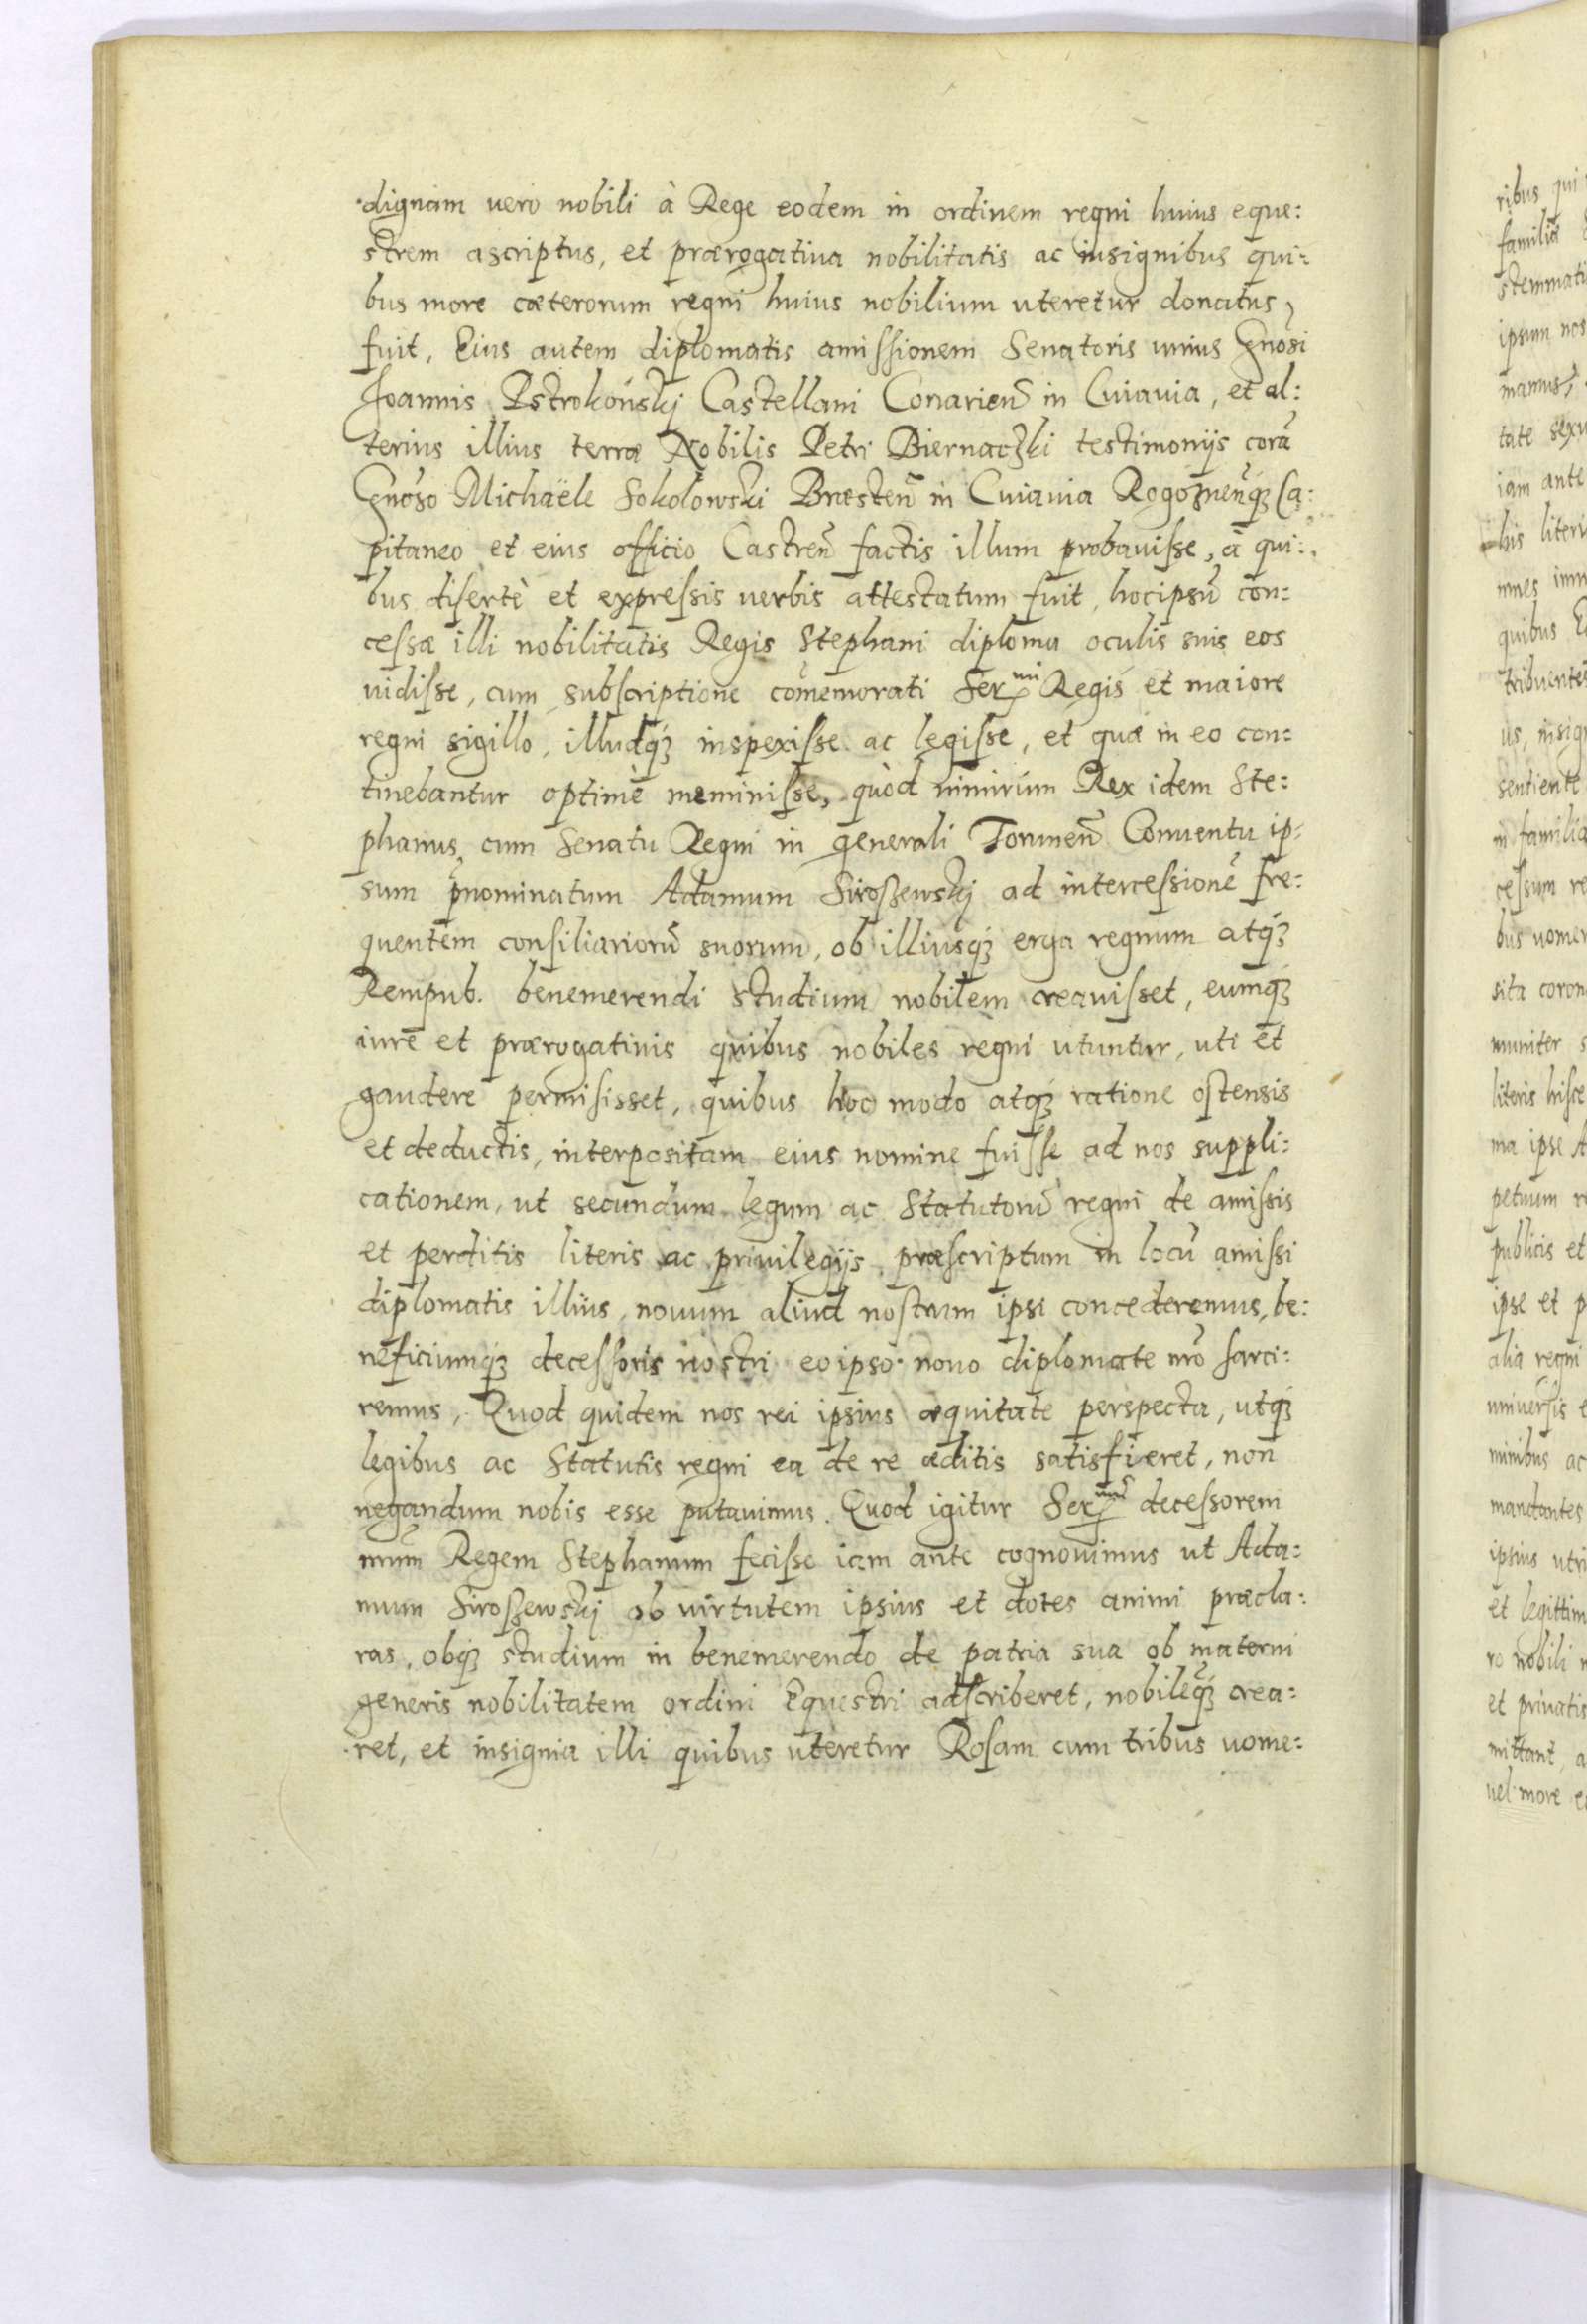 dignam vero nobili à Rege eodem in ordinem regni huius eque:
strem ascriptus, et prærogatiua nobilitatis ac insignibus qui:
bus more cæterorum regni huius nobilium uteretur donatus
fuit, Eius autem diplomatis amissionem Senatoris unius Gnosi
Joannis Pstrokoński Castellani Conarien̄ in Cuiauia, et al:
terius illius terræ Nobilis Petri Biernaczki testimonijs corā
Gnoso Michaële Sokolowski Brzesten̄ in Cuiauia Rogoznen̄q₃ Ca:
pitaneo et eius officio Castren̄ factis illum probauisse, à qui:
bus disertè et expressis verbis attestatum fuit, hocipsū con:
cessæ illi nobilitatis Regis Stephani diploma oculis suis eos
uidisse, cum subscriptione com̄emorati Ser^mi Regis et maiore
regni sigillo, illudq₃ inspexisse ac legisse, et quæ in eo con:
tinebantur optimè meminisse, quòd nimirùm Rex idem Ste:
phanus cum Senatu Regni in generali Torunen̄ Conuentu ip:
sum p̄nominatum Adamum Siroszewskj ad intercessionē fre:
quentem consiliariorū suorum, ob illiusq₃ erga regnum atq₃
Rempub. benemerendi studium nobilem creauisset, eumq₃
iure et prærogatiuis quibus nobiles regni utuntur, uti et
gaudere permisisset, quibus hoc modo atq₃ ratione ostensis
et deductis, interpositam eius nomine fuisse ad nos suppli:
cationem, ut secundum legum ac Statutorū regni de amissis
et perditis literis ac priuilegijs præscriptum in locū amissi
diplomatis illius, nouum aliud nostrum ipsi concederemus, be:
neficiumq₃ decessoris nostri eoipso nouo diplomate nr̄o sarci:
remus, Quod quidem nos rei ipsius æquitate perspecta, utq₃
legibus ac Statutis regni ea de re æditis satisfieret, non
negandum nobis esse putauimus. Quod igitur Ser^mū decessorem
nr̄um Regem Stephanum fecisse iam ante cognouimus ut Ada:
mum Siroszewskj ob virtutem ipsius et dotes animi præcla:
ras, obq₃ studium in benemerendo de patria sua ob materni
generis nobilitatem ordini Equestri adscriberet, nobilēq₃ crea:
ret, et insignia illi quibus uteretur Rosam cum tribus uome: